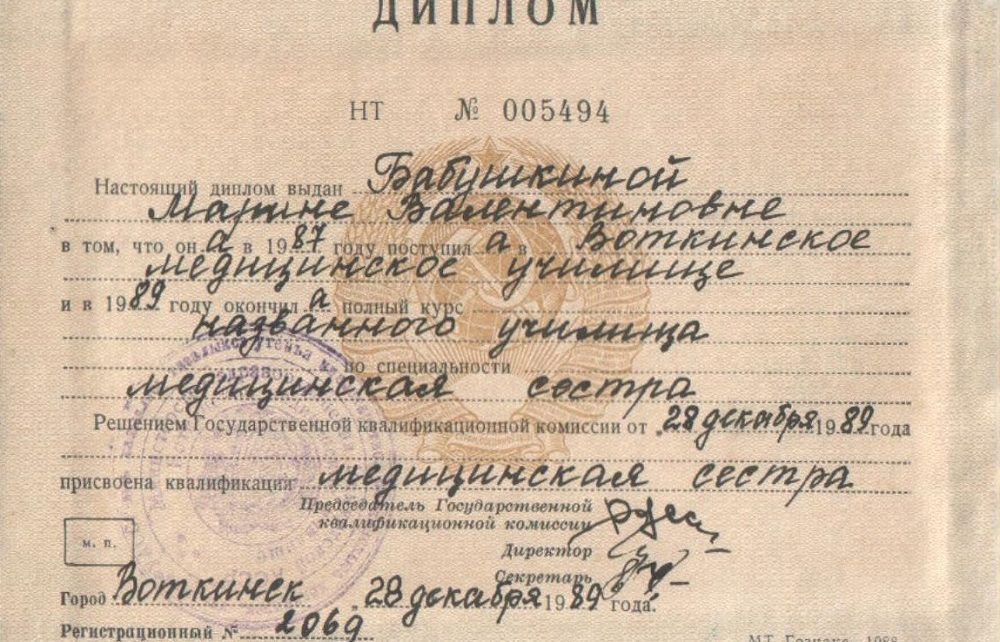 ДИПЛОМ
НТ № 005494
Настоящий диплом выдан Бабушкиной
Марине Валентиновне
в том, что он а в 1987 году поступил а в Воткинское
медицинское училище
и в 1989 году окончил а полный курс
названного училища
по специальности
медицинская сестра
Решением Государственной квалификационной комиссии от „28 декабря 1989 года
присвоена квалификация медицинская сестра
Председатель Государственной
квалификационной комиссии
Директор
м. п.
Секретарь
Город Воткинск „28 декабря 1989 года.
Регистрационный № 2069
МТ Гознака. 1988.